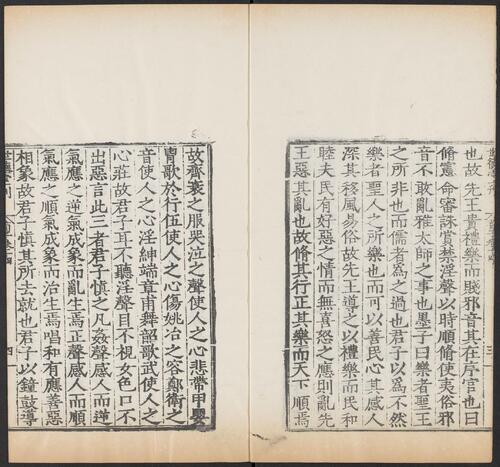 也故先王貴禮樂而賤邪音其在序官也曰
脩憲命審誅賞禁淫聲以時順脩使夷俗邪
音不敢亂雅太師之事也墨子曰樂者聖王
之所非也而儒者為之過也君子以為不然
樂者聖人之所樂也而可以善民心其感人
深其移風易俗故先王導之以禮樂而民和
睦夫民有好惡之情而無喜怒之應則亂先
王惡其亂也故脩其行正其樂而天下順焉
故齊衰之服哭泣之聲使人之心悲帶甲嬰
冑歌於行伍使人之心傷姚冶之容鄭衛之
音使人之心淫紳端章甫舞韶歌武使人之
心莊故君子耳不聽淫聲目不視女色口不
出惡言此三者君子慎之凡姦聲感人而逆
氣應之逆氣成象而亂生焉正聲感人而順
氣應之順氣成象而治生焉唱和有應善惡
相象故君子慎其所去就也君子以鐘鼓導
四